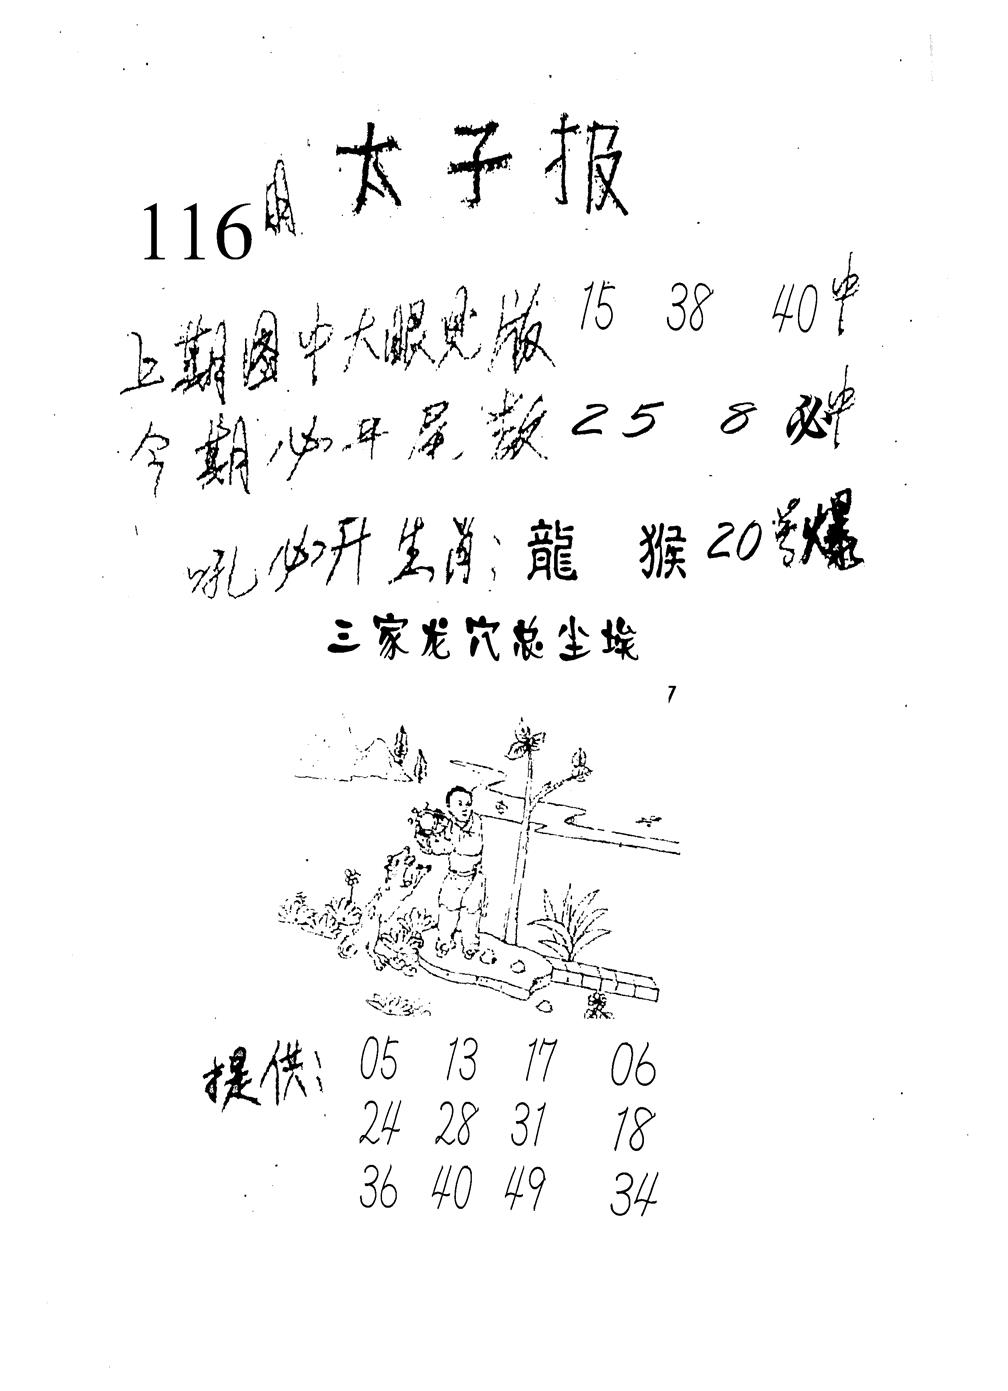 太子报
116期
上期图中大眼见版 15 38 40中
今期必开尾数 2 5 8 必中
吼必开生肖: 龍 猴 20号爆
三家龙穴总尘埃
7
提供: 05 13 17 06
24 28 31 18
36 40 49 34